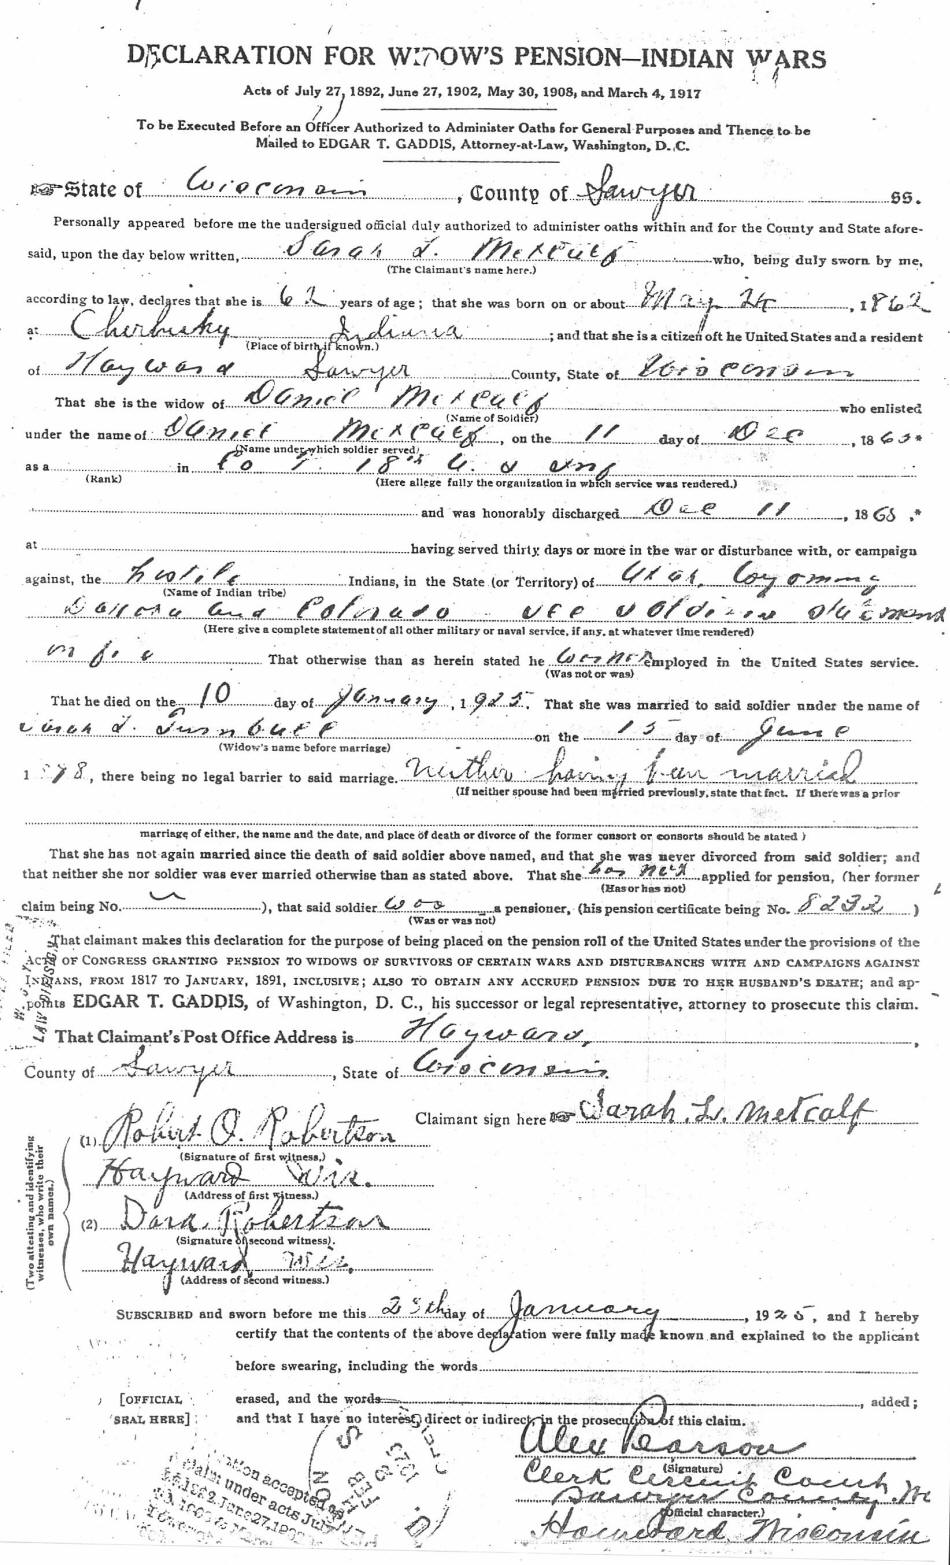 DECLARATION FOR WIDOW'S PENSION—INDIAN WARS
Acts of July 27, 1892, June 27, 1902, May 30, 1908, and March 4, 1917
To be Executed Before an Officer Authorized to Administer Oaths for General Purposes and Thence to be
Mailed to EDGAR T. GADDIS, Attorney-at-Law, Washington, D. C.
State of Wisconsin, County of Sawyer SS.
Personally appeared before me the undersigned official duly authorized to administer oaths within and for the County and State afore-
said, upon the day below written, Sarah L. Metcalf who, being duly sworn by me,
(The Claimant's name here.)
according to law, declares that she is 62 years of age; that she was born on or about May 24, 1862
at Cherbusky Indiana; and that she is a citizen oft he United States and a resident
(Place of birth if known.)
of Hayward Sawyer County, State of Wisconsin
That she is the widow of Daniel Metcalf who enlisted
(Name of Soldier)
under the name of Daniel Metcalf, on the 11 day of Dec, 1865*
(Name under which soldier served)
as a in Co 18th U. S Inf
(Rank) (Here allege fully the organization in which service was rendered.)
and was honorably discharged Dec 11, 1868.*
at having served thirty days or more in the war or disturbance with, or campaign
against, the hostile Indians, in the State (or Territory) of Utah, Wyoming
(Name of Indian tribe)
Dakota and Colorado see soldiers statement
(Here give a complete statement of all other military or naval service, if any, at whatever time rendered)
That otherwise than as herein stated he was not employed in the United States service.
(Was not or was)
That he died on the 10 day of January, 1925. That she was married to said soldier under the name of
Sarah L. Turnbull on the 15 day of June
(Widow's name before marriage)
1878, there being no legal barrier to said marriage. Neither having been married
(If neither spouse had been married previously, state that fact. If there was a prior
marriage of either, the name and the date, and place of death or divorce of the former consort or consorts should be stated)
That she has not again married since the death of said soldier above named, and that she was never divorced from said soldier; and
that neither she nor soldier was ever married otherwise than as stated above. That she has not applied for pension, (her former
(Has or has not)
claim being No. ), that said soldier was a pensioner, (his pension certificate being No. 8232 )
(Was or was not)
That claimant makes this declaration for the purpose of being placed on the pension roll of the United States under the provisions of the
ACTS OF CONGRESS GRANTING PENSION TO WIDOWS OF SURVIVORS OF CERTAIN WARS AND DISTURBANCES WITH AND CAMPAIGNS AGAINST
INDIANS, FROM 1817 TO JANUARY, 1891, INCLUSIVE; ALSO TO OBTAIN ANY ACCRUED PENSION DUE TO HER HUSBAND'S DEATH; and ap-
points EDGAR T. GADDIS, of Washington, D. C., his successor or legal representative, attorney to prosecute this claim.
That Claimant's Post Office Address is Hayward,
County of Sawyer, State of Wisconsin.
Claimant sign here Sarah. L. Metcalf
(Two attesting and identifying witnesses, who write their own names.)
(1) Robert O. Robertson
(Signature of first witness,)
Hayward Wis.
(Address of first witness.)
(2) Dora Robertson
(Signature of second witness).
Hayward Wis.
(Address of second witness.)
SUBSCRIBED and sworn before me this 28th day of January, 1925, and I hereby
certify that the contents of the above declaration were fully made known and explained to the applicant
before swearing, including the words
[OFFICIAL erased, and the words , added;
SEAL HERE] and that I have no interest, direct or indirect, in the prosecution of this claim.
Alex Pearson
(Signature)
Clerk Circuit Court,
Sawyer County,
(Official character.)
Hayward, Wisconsin